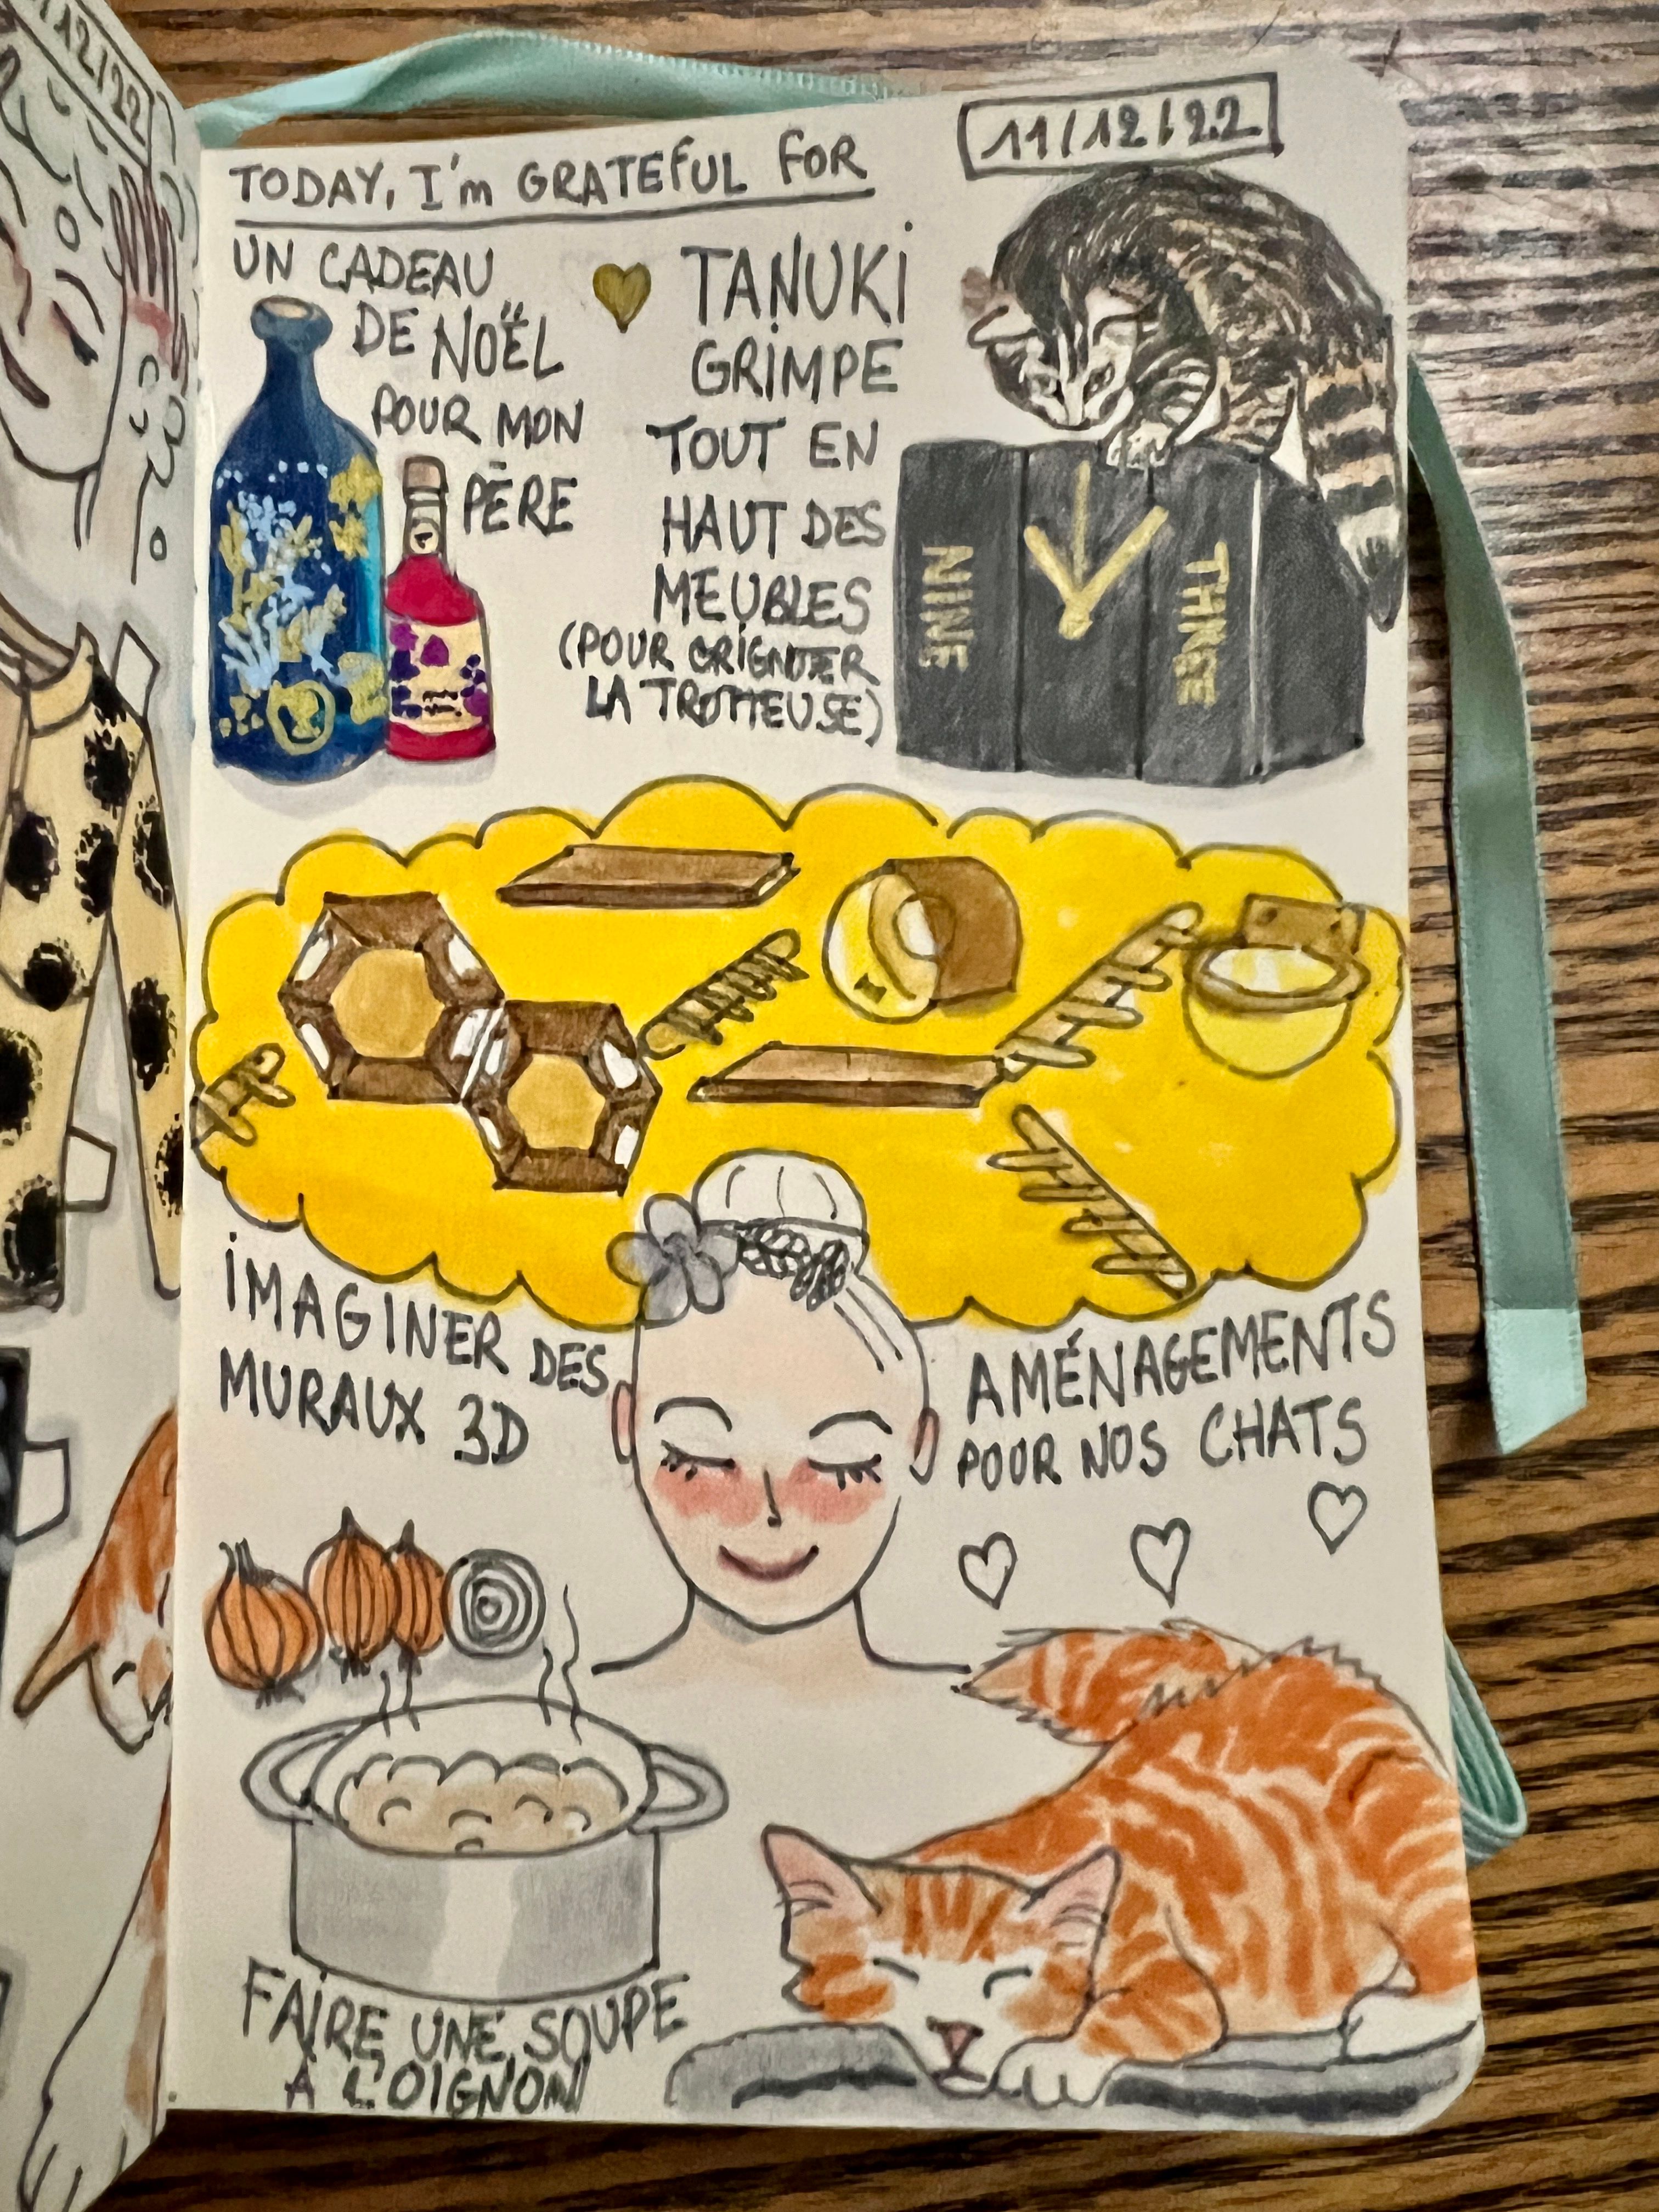 12/22
TODAY, I'm GRATEFUL FOR
11/12/22
UN CADEAU
DE NOËL
POUR MON
PÈRE
TANUKI
GRIMPE
TOUT EN
HAUT DES
MEUBLES
(POUR GRIGNOTER
LA TROTTEUSE)
NINE
THREE
IMAGINER DES
MURAUX 3D
AMÉNAGEMENTS
POUR NOS CHATS
FAIRE UNE SOUPE
À L'OIGNON